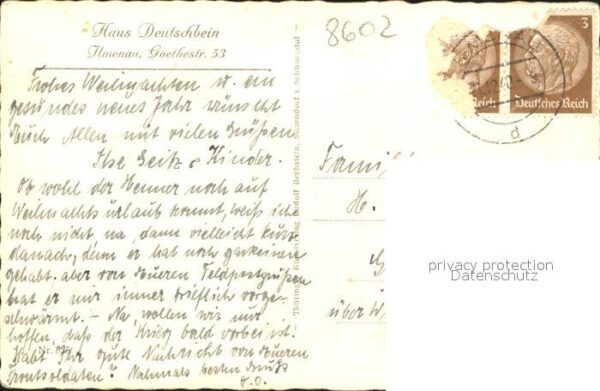 Haus Deutschbein
Ilmenau, Goethestr. 53
8602
Frohes Weihnachten u. ein
gesundes neues Jahr wünscht
Euch Allen mit vielen Grüßen
Ilse Seitz & Kinder.
Ob wohl der Henner noch auf
Weihnachtsurlaub kommt, weiß ich
noch nicht, na, dann vielleicht kurz
danach, denn er hat noch garkeinen
gehabt. aber von Eueren Feldpostgrüßen
hat er mir immer brieflich vorge-
schwärmt. – Na, wollen wir nur
hoffen, daß der Krieg bald vorbei ist.
Habt Ihr gute Nachricht von Eueren
Frontsoldaten? Nochmals besten Gruß
d. O.
3
Reich
Deutsches Reich
d
Fami
H.
über W
privacy protection
Datenschutz